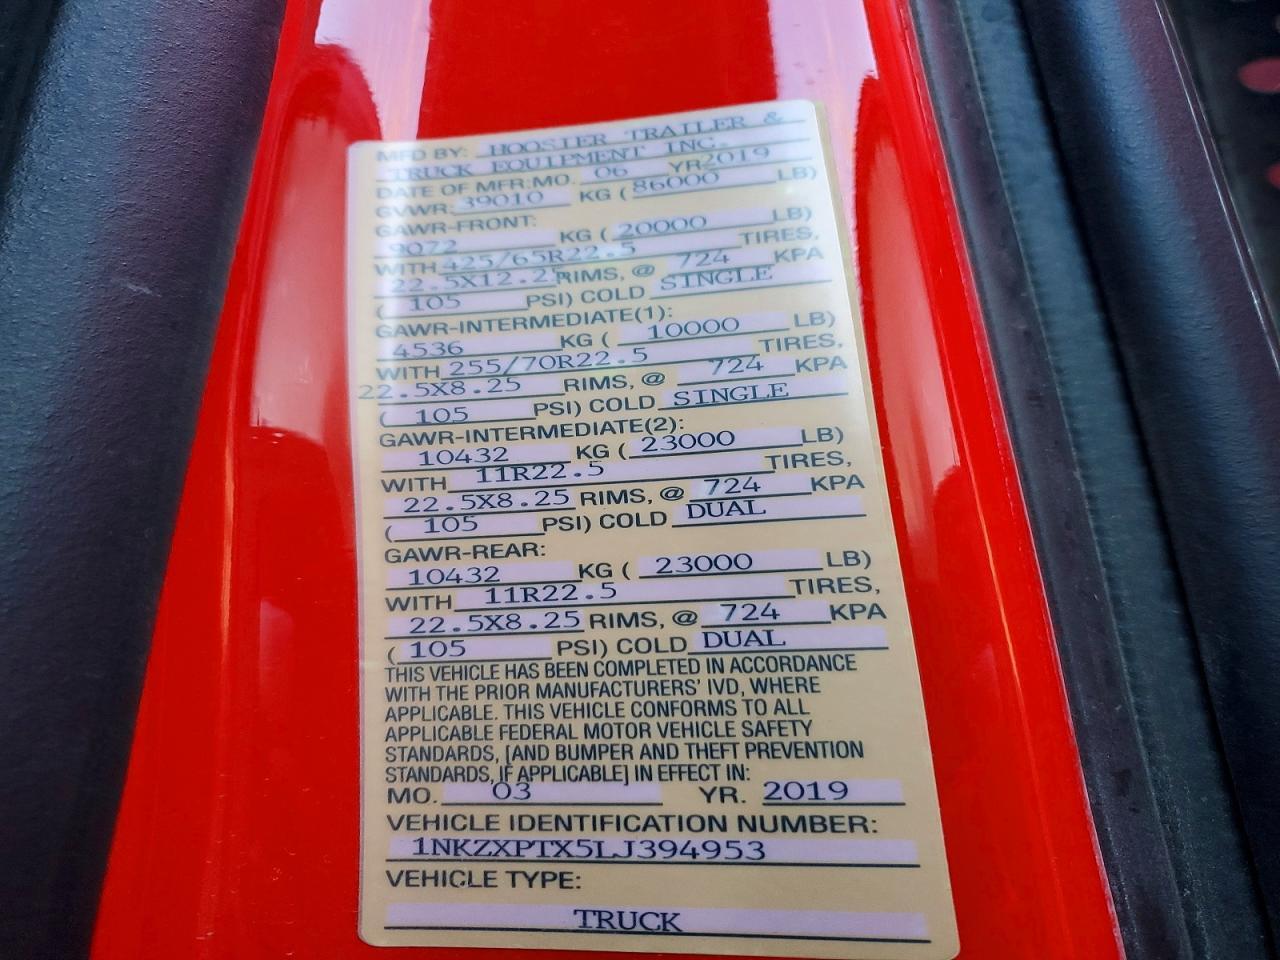 MFD BY: HOOSIER TRAILER &
TRUCK EQUIPMENT INC.
DATE OF MFR:MO. 06 YR2019
GVWR: 39010 KG ( 86000 LB)
GAWR-FRONT:
9072 KG ( 20000 LB)
WITH 425/65R22.5 TIRES,
22.5X12.25 RIMS, @ 724 KPA
( 105 PSI) COLD SINGLE
GAWR-INTERMEDIATE(1):
4536 KG ( 10000 LB)
WITH 255/70R22.5 TIRES,
22.5X8.25 RIMS, @ 724 KPA
( 105 PSI) COLD SINGLE
GAWR-INTERMEDIATE(2):
10432 KG ( 23000 LB)
WITH 11R22.5 TIRES,
22.5X8.25 RIMS, @ 724 KPA
( 105 PSI) COLD DUAL
GAWR-REAR:
10432 KG ( 23000 LB)
WITH 11R22.5 TIRES,
22.5X8.25 RIMS, @ 724 KPA
( 105 PSI) COLD DUAL
THIS VEHICLE HAS BEEN COMPLETED IN ACCORDANCE
WITH THE PRIOR MANUFACTURERS' IVD, WHERE
APPLICABLE. THIS VEHICLE CONFORMS TO ALL
APPLICABLE FEDERAL MOTOR VEHICLE SAFETY
STANDARDS, [AND BUMPER AND THEFT PREVENTION
STANDARDS, IF APPLICABLE] IN EFFECT IN:
MO. 03 YR. 2019
VEHICLE IDENTIFICATION NUMBER:
1NKZXPTX5LJ394953
VEHICLE TYPE:
TRUCK